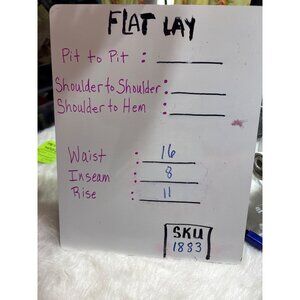 FLAT LAY
Pit to Pit :
Shoulder to Shoulder :
Shoulder to Hem :
Waist : 16
Inseam : 8
Rise : 11
SKU
1883